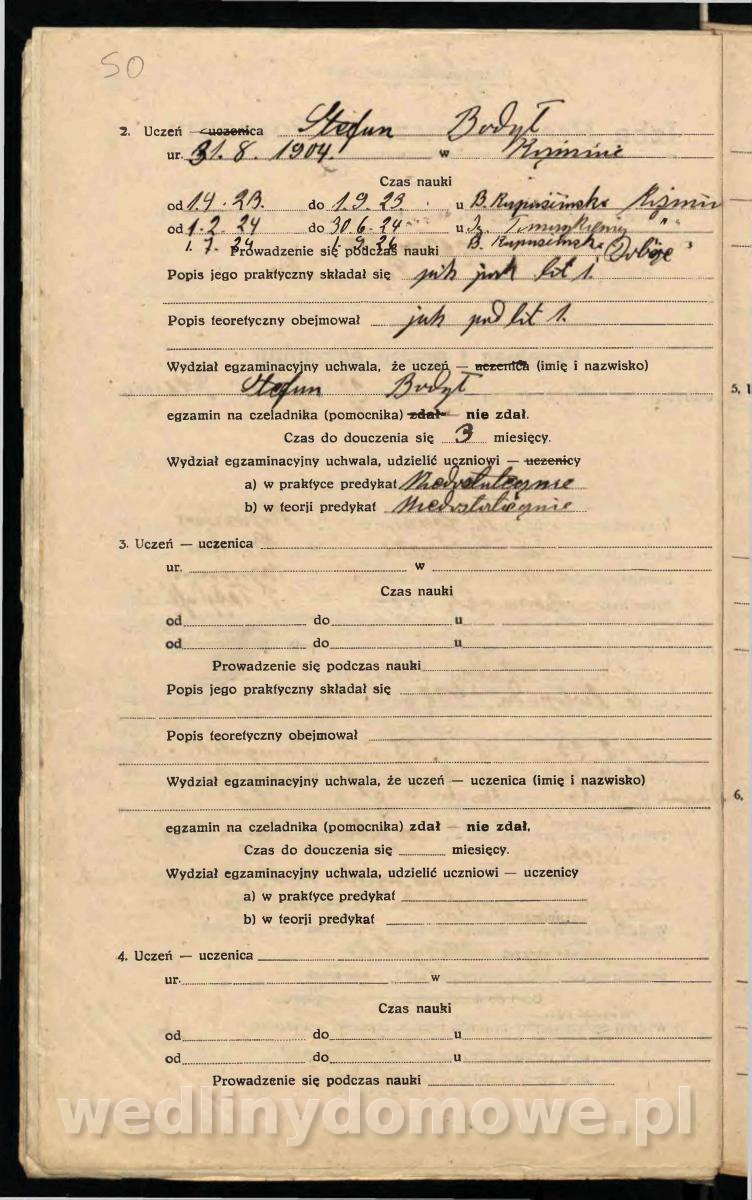 50
2. Uczeń — uczenica Stefan Bodył
ur. 31. 8. 1904. w
Czas nauki
od 1.4.23. do 1.9.23. u B.
od 1.2.24 do 30.6.24 u
1.7.24 1.9.26 B.
Prowadzenie się podczas nauki Dobre
Popis jego praktyczny składał się jak pod lit 1.
Popis teoretyczny obejmował jak pod lit 1.
Wydział egzaminacyjny uchwala, że uczeń — uczenica (imię i nazwisko)
Stefan Bodył
egzamin na czeladnika (pomocnika) zdał — nie zdał.
Czas do douczenia się 3 miesięcy.
Wydział egzaminacyjny uchwala, udzielić uczniowi — uczenicy
a) w praktyce predykat Niedostatecznie
b) w teorji predykat Niedostatecznie
3. Uczeń — uczenica
ur. w
Czas nauki
od do u
od do u
Prowadzenie się podczas nauki
Popis jego praktyczny składał się
Popis teoretyczny obejmował
Wydział egzaminacyjny uchwala, że uczeń — uczenica (imię i nazwisko)
egzamin na czeladnika (pomocnika) zdał — nie zdał.
Czas do douczenia się miesięcy.
Wydział egzaminacyjny uchwala, udzielić uczniowi — uczenicy
a) w praktyce predykat
b) w teorji predykat
4. Uczeń — uczenica
ur. w
Czas nauki
od do u
od do u
Prowadzenie się podczas nauki
wedlinydomowe.pl
5, 1
6,